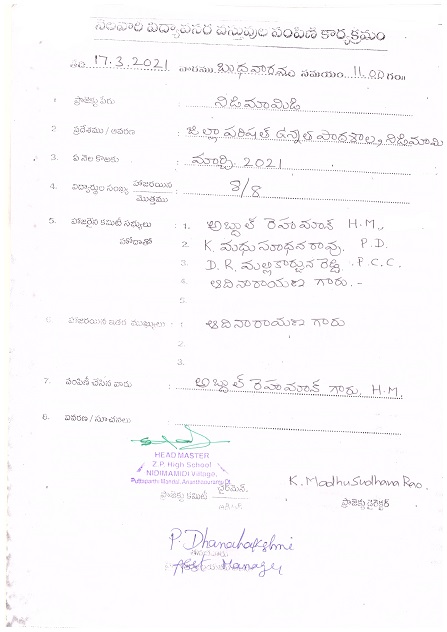 నెలవారి విద్యావసర వస్తువుల పంపిణి కార్యక్రమం
తేది 17.3.2021 వారము బుధవారము సమయం 11.00 గం॥
1 ప్రాజెక్టు పేరు : నిడిమామిడి
2 ప్రదేశము / ఆవరణ : జిల్లా పరిషత్ ఉన్నత పాఠశాల, నిడిమామి
3. ఏ నెల కొఱకు : మార్చి 2021
4. విద్యార్థుల సంఖ్య హాజరయిన / మొత్తము : 8/8
5. హాజరైన కమిటి సభ్యులు : 1. అబ్దుల్ రెహమాన్ H.M.,
హోదాతో 2. K. మధుసూధనరావు. P.D.
3. D.R. మల్లికార్జున రెడ్డి. P.C.C.
4. ఆదినారాయణ గారు.-
5.
6. హాజరయిన ఇతర ముఖ్యులు : 1. ఆదినారాయణ గారు
2.
3.
7. పంపిణీ చేసిన వారు : అబ్దుల్ రెహమాన్ గారు. H.M.
8. వివరణ / సూచనలు :
HEAD MASTER
Z.P. High School
NIDIMAMIDI Village,
Puttaparthi Mandal, Ananthapuramu
ప్రాజెక్టు కమిటీ చైర్మెన్.
K. Madhusudhana Rao.
ప్రాజెక్టు డైరెక్టర్
P. Dhanalakshmi
Asst Manager